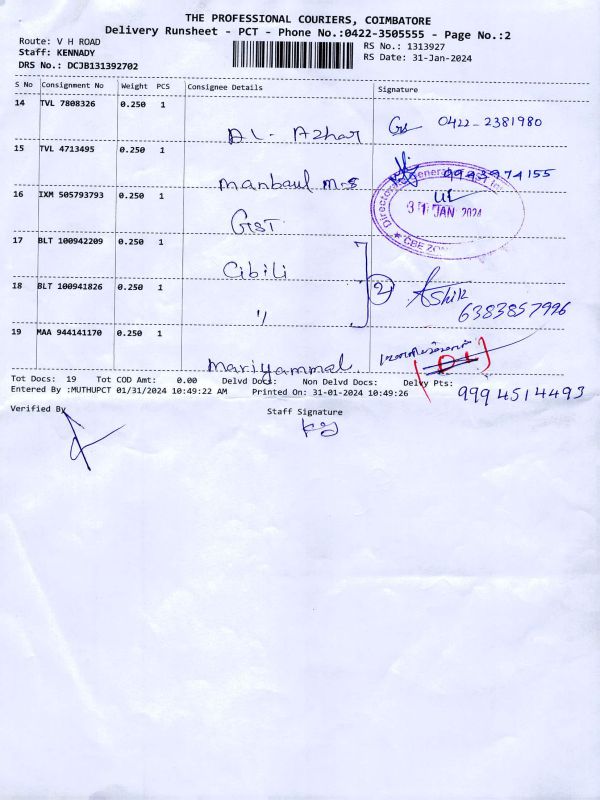 THE PROFESSIONAL COURIERS, COIMBATORE
Delivery Runsheet - PCT - Phone No.:0422-3505555 - Page No.:2
Route: V H ROAD
RS No.: 1313927
Staff: KENNADY
RS Date: 31-Jan-2024
DRS No.: DCJB131392702
S No Consignment No Weight PCS Consignee Details Signature
14 TVL 7808326 0.250 1
Al - Azhar 0422-2381980
15 TVL 4713495 0.250 1
manbaul m-s 9993974155
16 IXM 505793793 0.250 1
31 JAN 2024
GST
17 BLT 100942209 0.250 1
Cibili
18 BLT 100941826 0.250 1
2 Ashik
6383857996
"
19 MAA 944141170 0.250 1
mariyammal
Tot Docs: 19 Tot COD Amt: 0.00 Delvd Docs: Non Delvd Docs: Delvy Pts:
Entered By :MUTHUPCT 01/31/2024 10:49:22 AM Printed On: 31-01-2024 10:49:26
9994514493
Verified By
Staff Signature